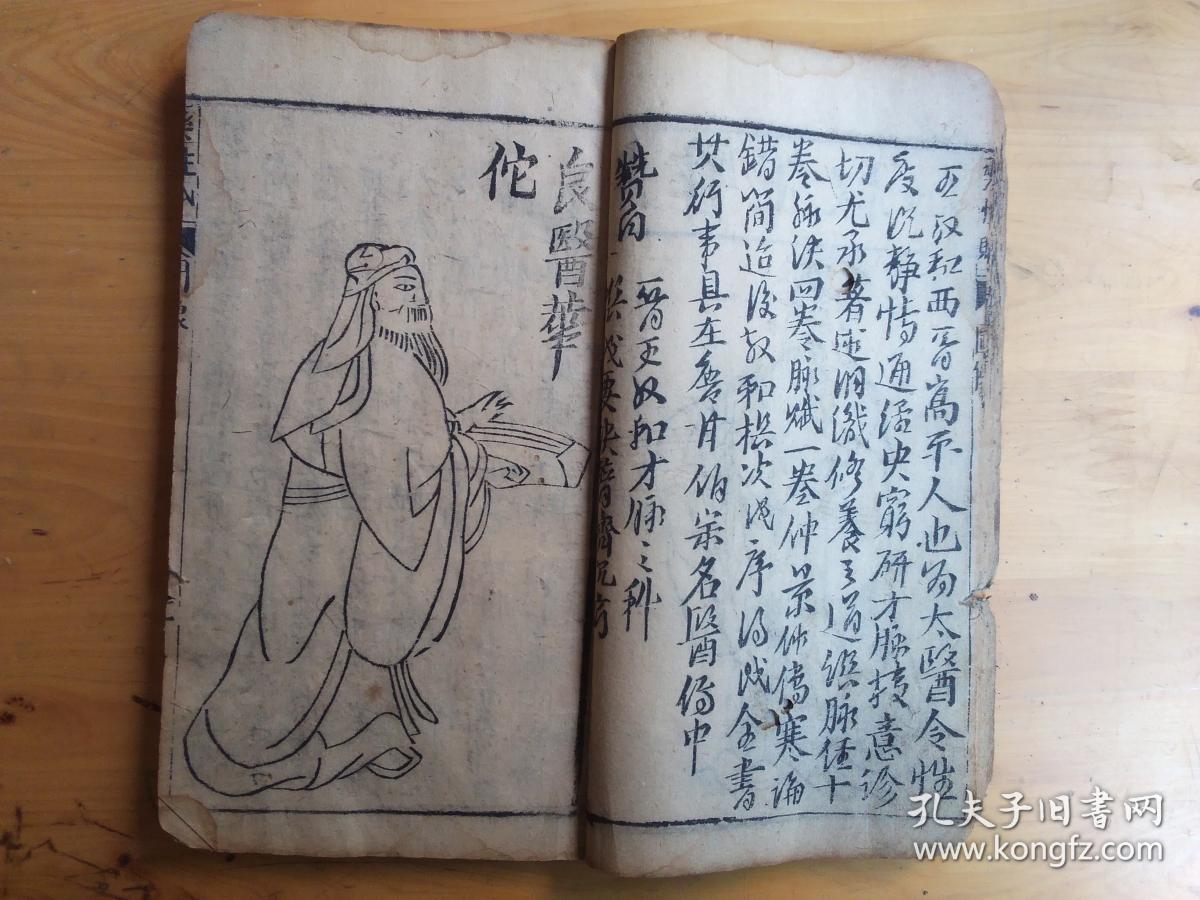 王叔和西晉高平人也為太醫令性
度沉静博通经史窮研方脉精意診
切尤承著述洞識修養之道譔脉経十
卷脉决四卷脉賦一卷仲景作傷寒論
錯簡迨後叔和撰次成序得成全書
其行事具在唐甘伯宗名醫傳中
贊曰 晉王叔和方脉之科
撰成要訣普濟沉痾
良醫華
佗
藥性賦
孔夫子旧书网
www.kongfz.com